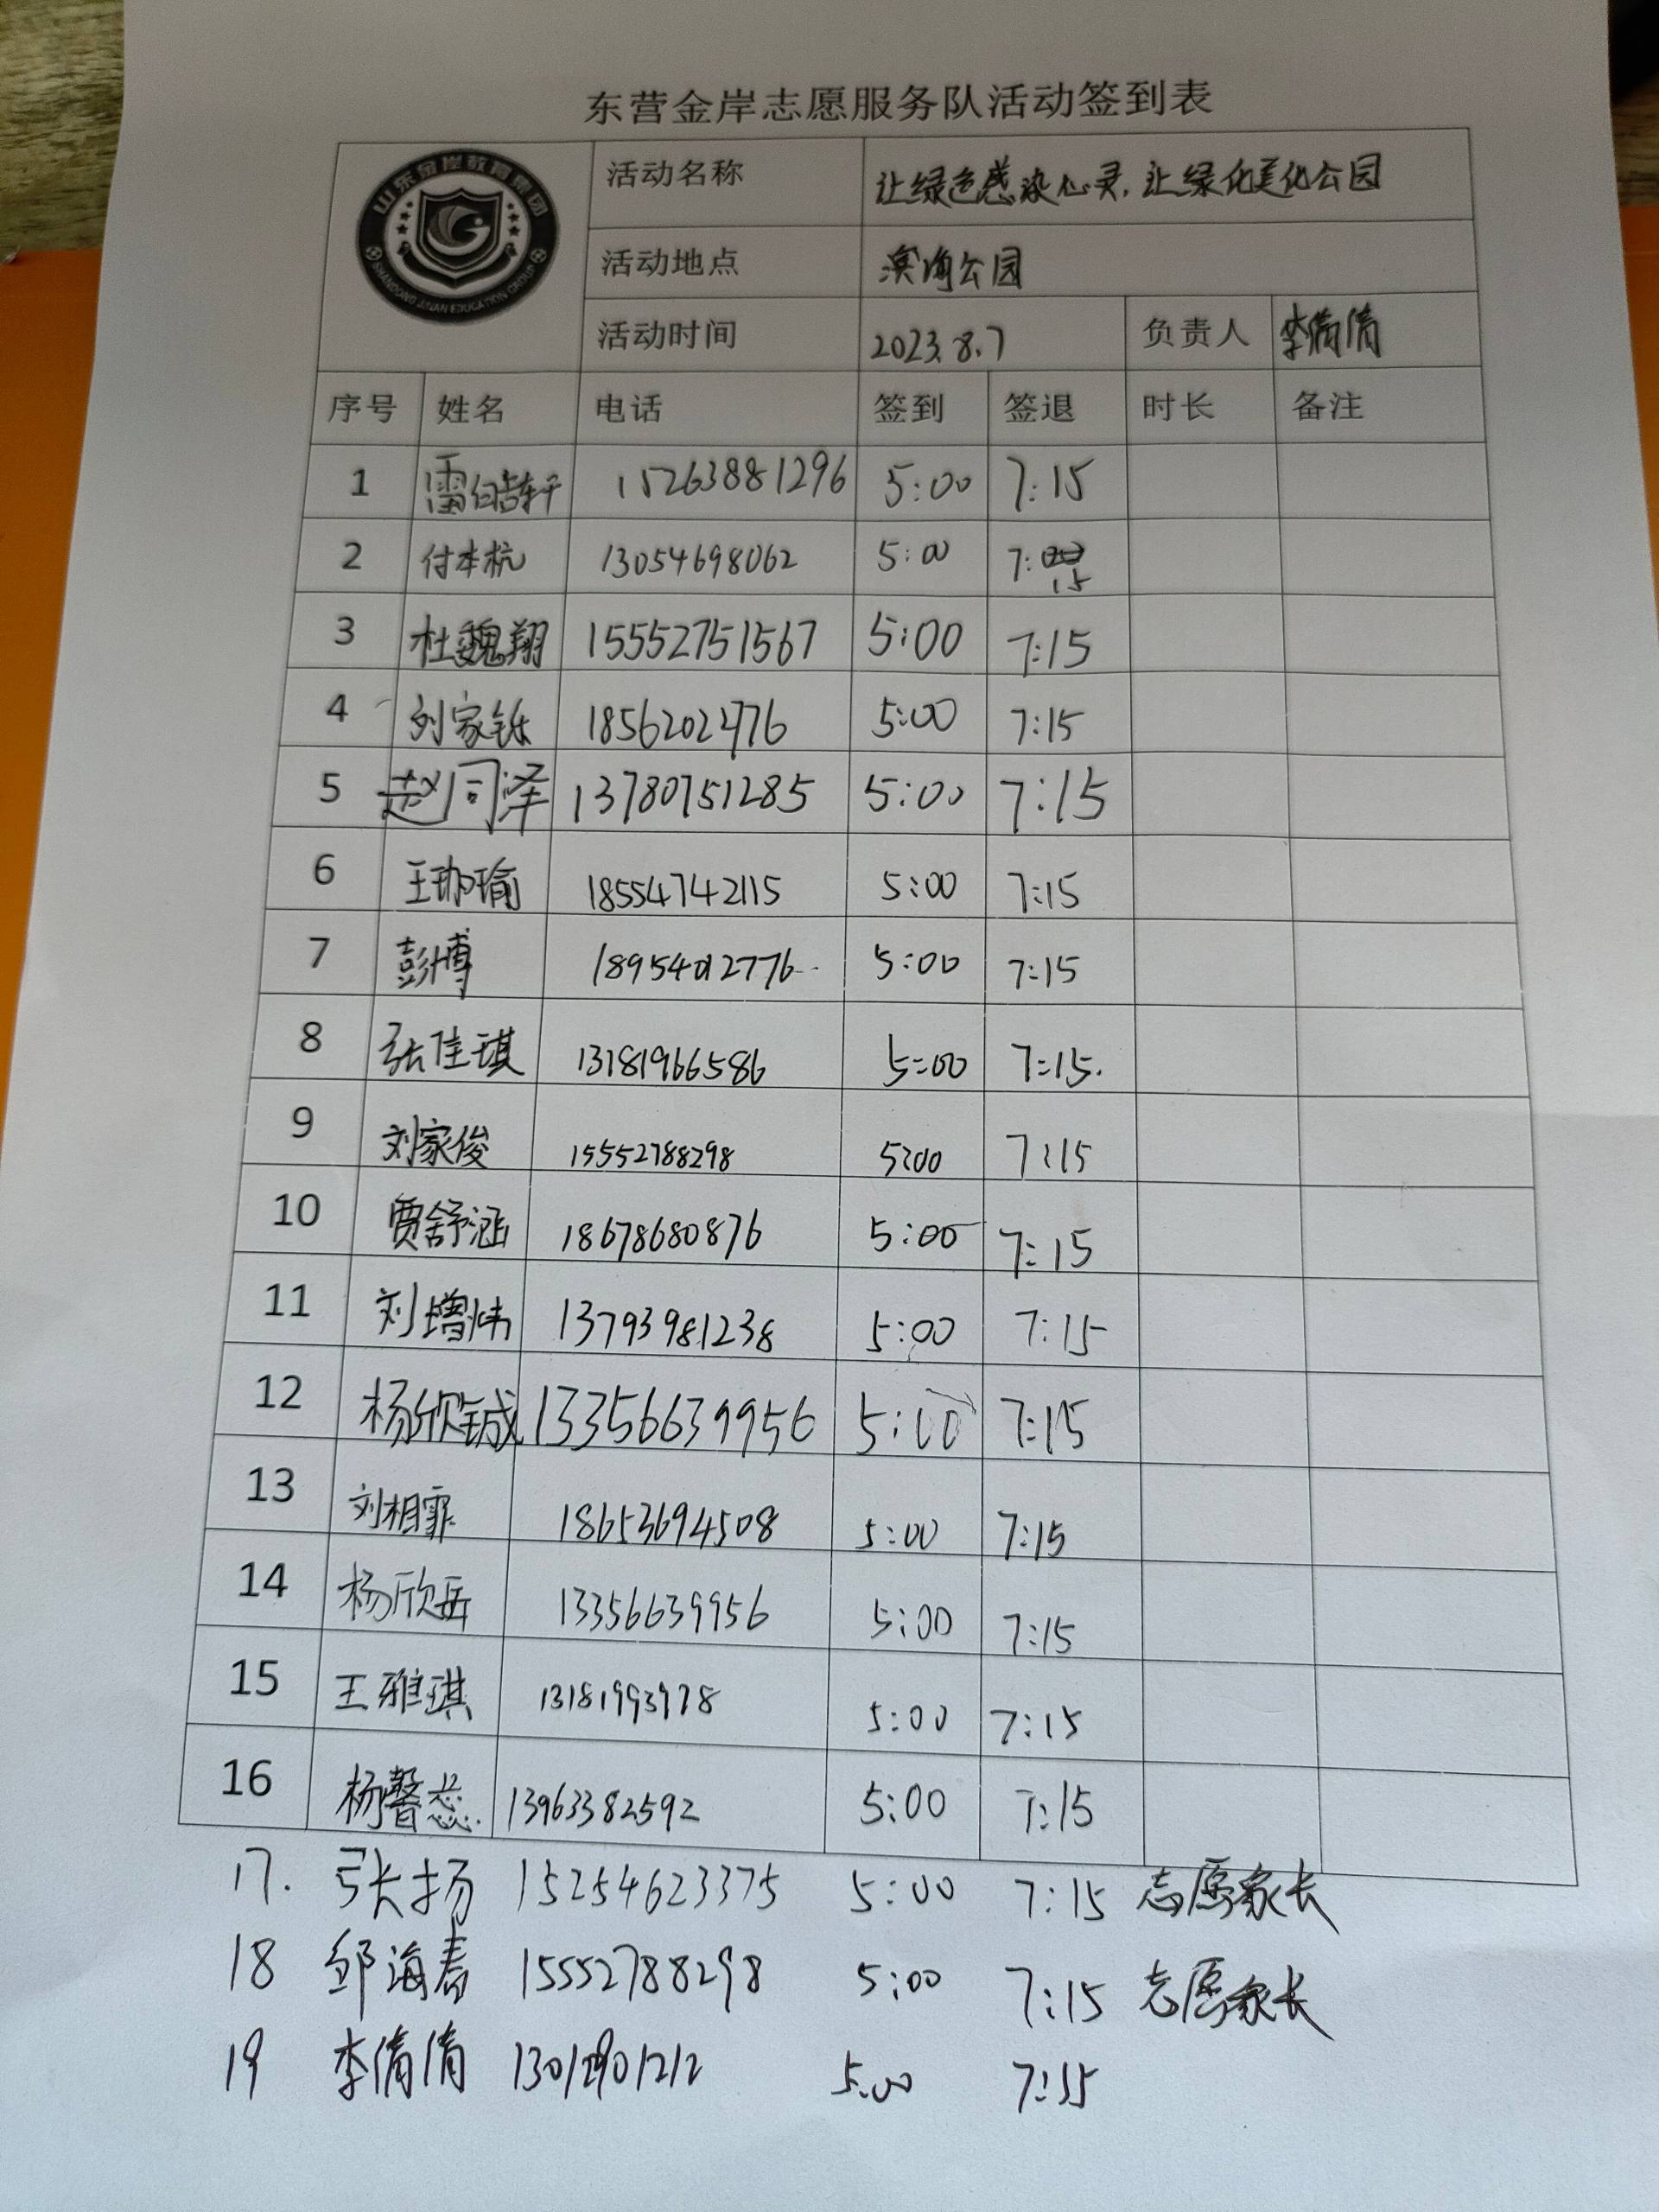 东营金岸志愿服务队活动签到表
山东金岸教育集团
SHANDONG JINAN EDUCATION GROUP
活动名称 让绿色感染心灵,让绿化美化公园
活动地点 滨海公园
活动时间 2023.8.7 负责人 李倩倩
序号 姓名 电话 签到 签退 时长 备注
1 雷皓轩 15263881296 5:00 7:15
2 付本杭 13054698062 5:00 7:15
3 杜魏翔 15552751567 5:00 7:15
4 刘家铄 18562022776 5:00 7:15
5 赵同泽 13780751285 5:00 7:15
6 王珈瑜 18554742115 5:00 7:15
7 彭博 18954012776 5:00 7:15
8 张佳琪 13181966586 5:00 7:15.
9 刘家俊 15552788298 5:00 7:15
10 贾舒涵 18678680876 5:00 7:15
11 刘增炜 13793981238 5:00 7:15
12 杨欣铖 13356639956 5:00 7:15
13 刘相霏 18653694508 5:00 7:15
14 杨欣岳 13356639956 5:00 7:15
15 王雅琪 13181993978 5:00 7:15
16 杨馨蕊 13963382592 5:00 7:15
17. 张扬 15254623375 5:00 7:15 志愿家长
18 邹海春 15552788298 5:00 7:15 志愿家长
19 李倩倩 5:00 7:15